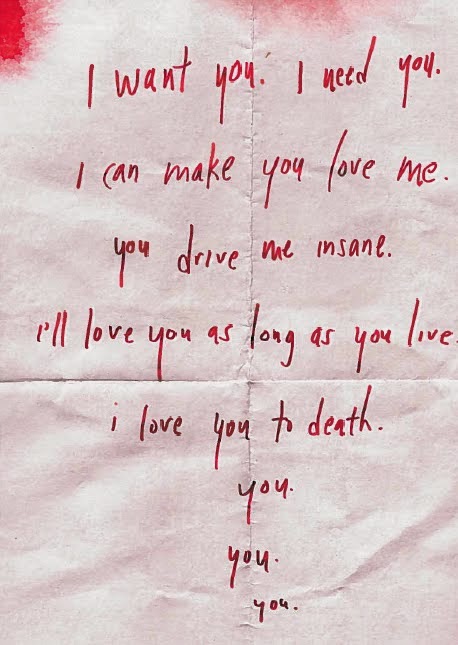 I want you. I need you.
I can make you love me.
you drive me insane.
i'll love you as long as you live.
i love you to death.
you.
you.
you.